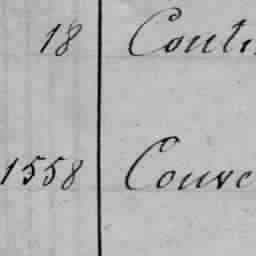 18 Conti
1558 Couve